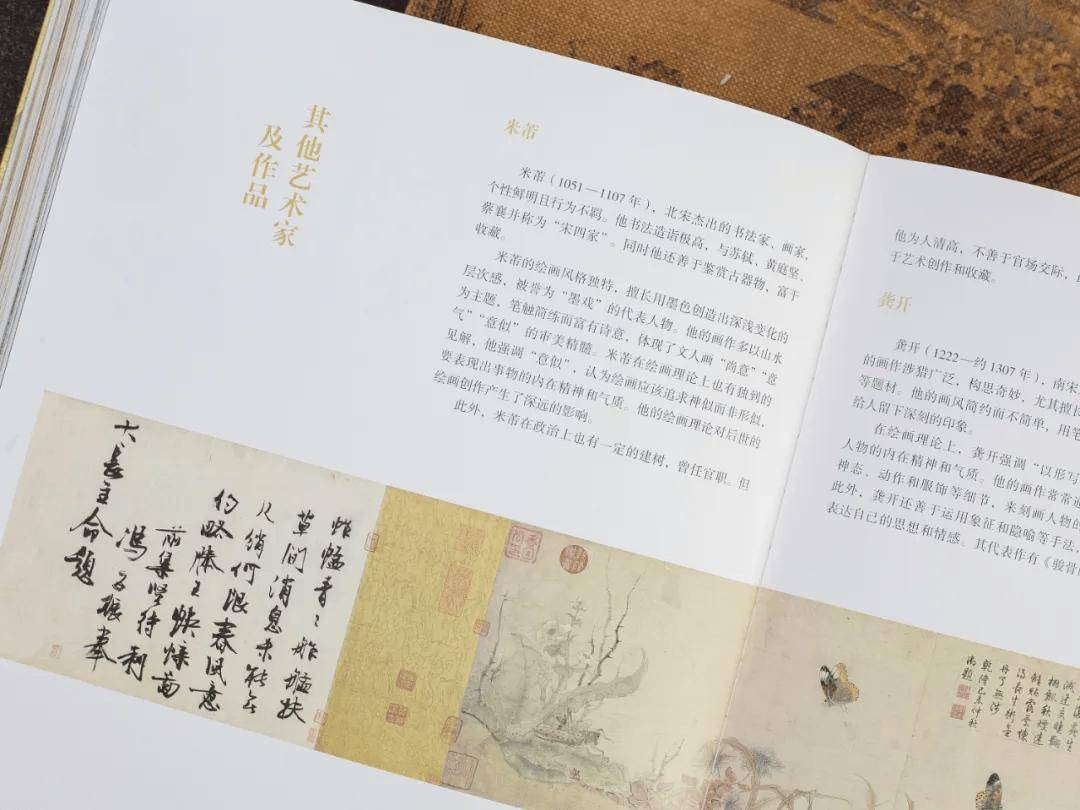 其他艺术家
及作品
米芾
米芾（1051—1107 年），北宋杰出的书法家、画家，
个性鲜明且行为不羁。他书法造诣极高，与苏轼、黄庭坚、
蔡襄并称为“宋四家”。同时他还善于鉴赏古器物，富于
收藏。
米芾的绘画风格独特，擅长用墨色创造出深浅变化的
层次感，被誉为“墨戏”的代表人物。他的画作多以山水
为主题，笔触简练而富有诗意，体现了文人画“尚意”“意
气”“意似”的审美精髓。米芾在绘画理论上也有独到的
见解，他强调“意似”，认为绘画应该追求神似而非形似，
要表现出事物的内在精神和气质。他的绘画理论对后世的
绘画创作产生了深远的影响。
此外，米芾在政治上也有一定的建树，曾任官职。但
他为人清高，不善于官场交际，
于艺术创作和收藏。
龚开
龚开（1222—约 1307 年），南宋
的画作涉猎广泛，构思奇妙，尤其擅长
等题材。他的画风简约而不简单，用笔
给人留下深刻的印象。
在绘画理论上，龚开强调“以形写
人物的内在精神和气质。他的画作常常通
神态、动作和服饰等细节，来刻画人物的
此外，龚开还善于运用象征和隐喻等手法，
表达自己的思想和情感。其代表作有《骏骨
草间消息未能
约略滕王
前集贤待制
冯子振奉
大长主命题
乾隆己未仲秋
御题